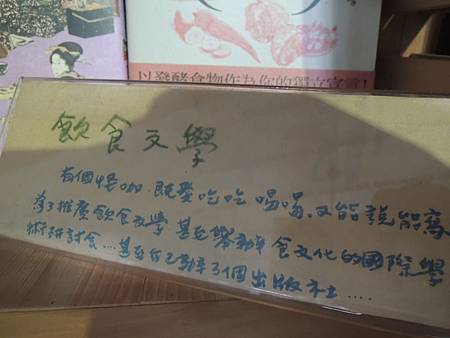 以發酵食物作為你的獨立宣言！
飲食文學
有個怪咖，既愛吃吃喝喝，又能說能寫
為了推廣飲食文學 甚至舉辦 食文化的國際學
術研討會…甚至自己弄了個出版社….